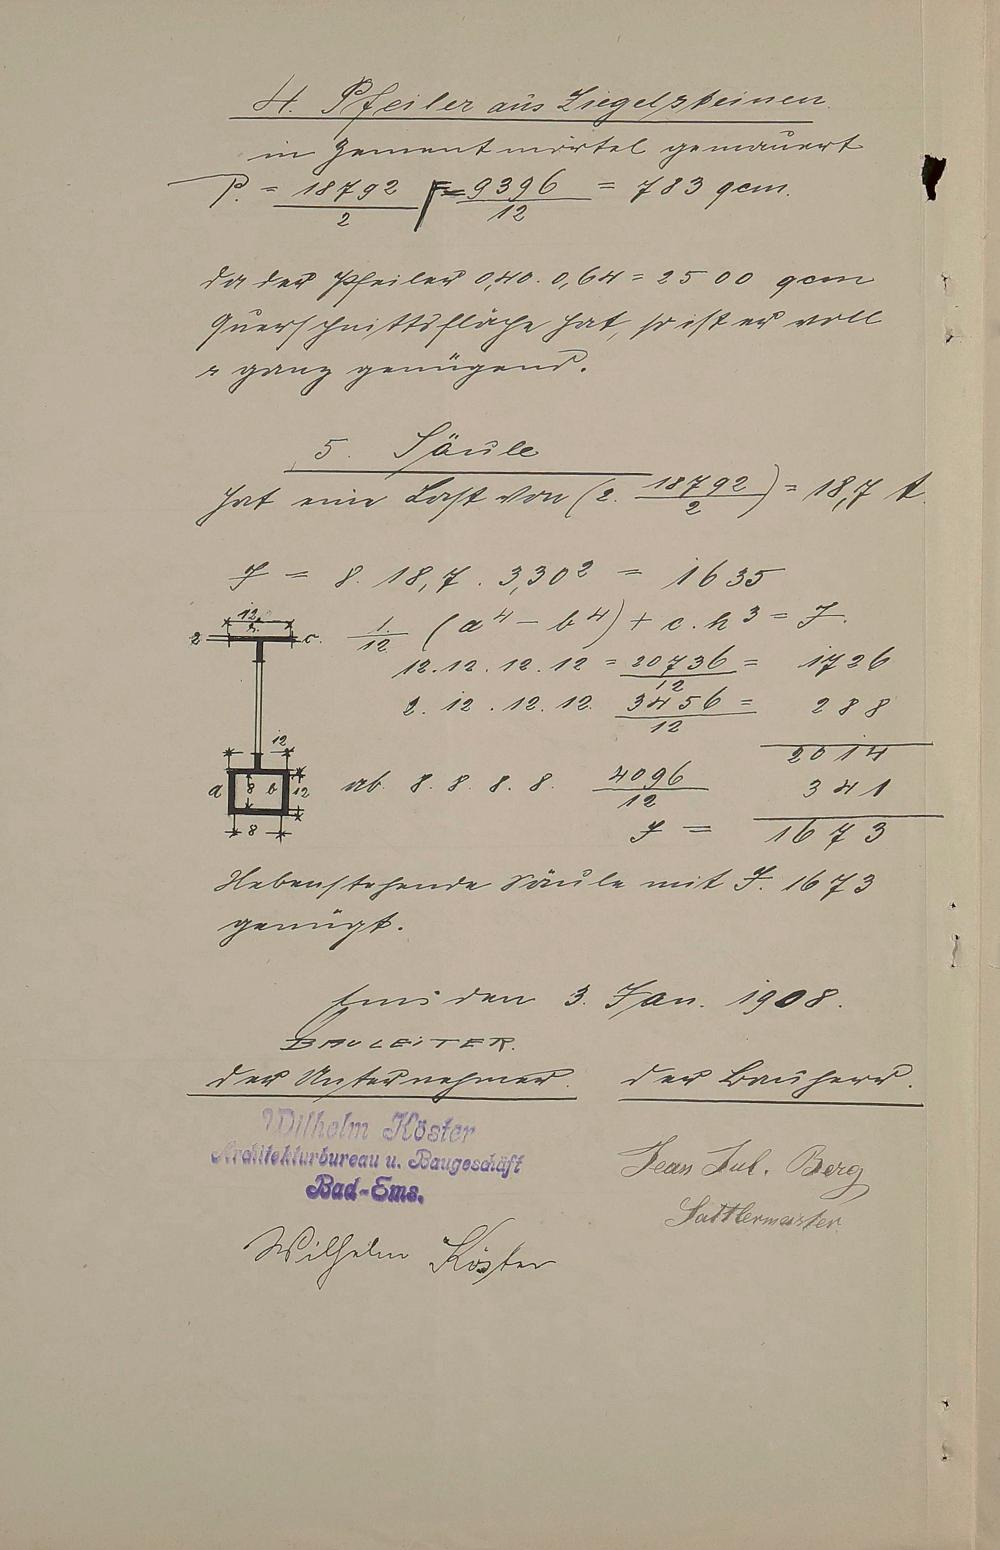 4. Pfeiler aus Ziegelsteinen
in Zementmörtel gemauert
P. = 18792/2 F = 9396/12 = 783 qcm.
da der Pfeiler 0,40 . 0,64 = 2500 qcm
Querschnittsfläche hat, so ist er voll
u ganz genügend.
5. Säule
hat eine Last von (2. 18792/2) = 18,7 t
J = 8. 18,7 . 3,30² = 1635
1/12 (a⁴ - b⁴) + c. h³ = J.
12. 12. 12. 12 = 20736/12 = 1726
2. 12. 12. 12. 3456/12 = 288
2014
ab 8. 8. 8. 8. 4096/12 341
J = 1673
12
h.
2 c.
12
a 8 b 12
8
Nebenstehende Säule mit J. 1673
genügt.
Ems den 3. Jan. 1908.
BAULEITER.
der Unternehmer. der Bauherr.
Wilhelm Köster
Architekturbureau u. Baugeschäft
Bad-Ems.
Jean Jul. Berg
Sattlermeister
Wilhelm Köster